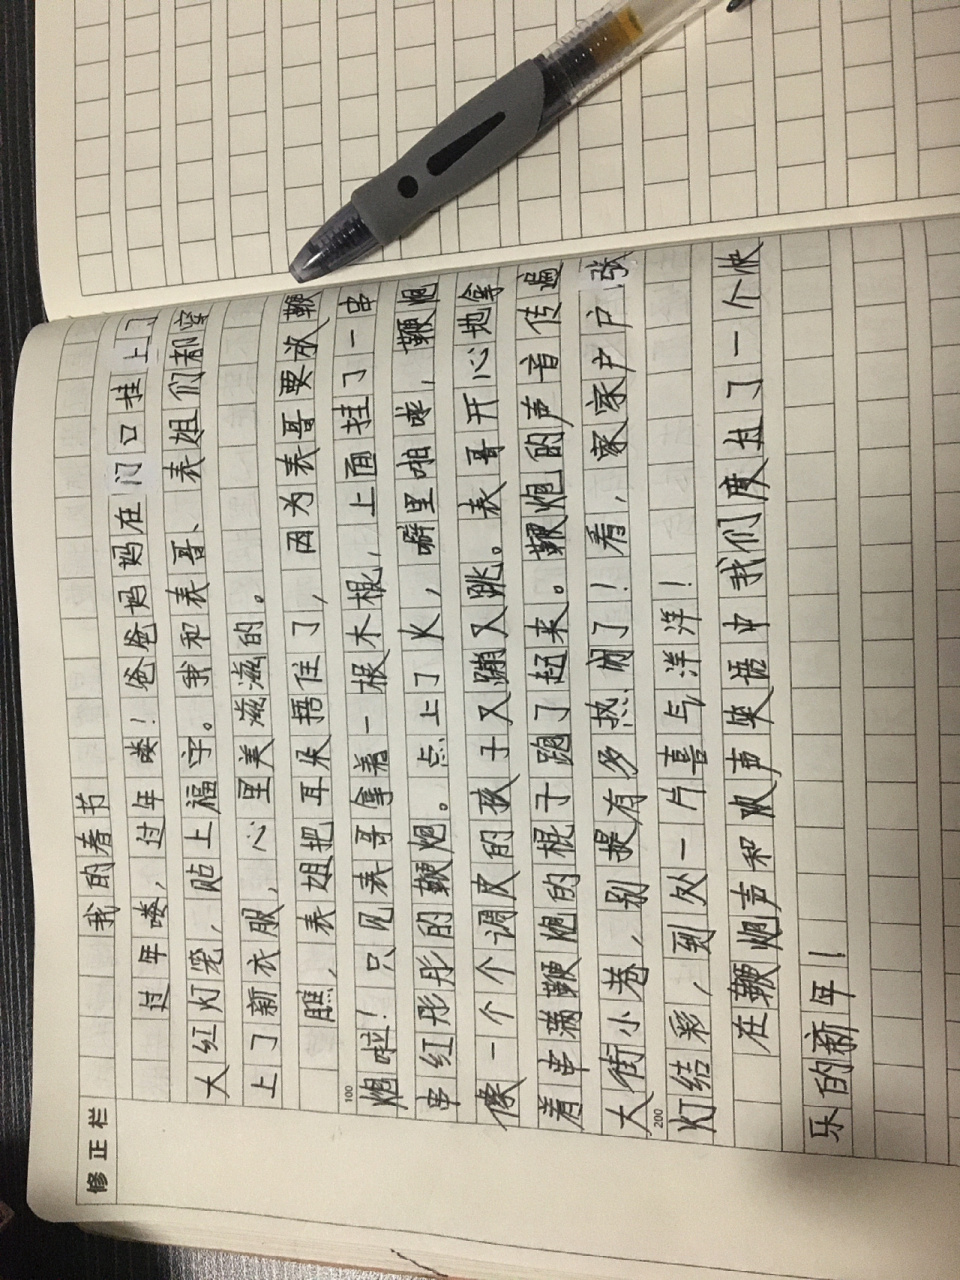 修正栏
我的春节
过年喽，过年喽！爸爸妈妈在门口挂上了
大红灯笼，贴上福字。我和表哥、表姐们都穿
上了新衣服，心里美滋滋的。
瞧，表姐把耳朵捂住了，因为表哥要放鞭
100
炮啦！只见表哥拿着一根木棍，上面挂了一串
串红彤彤的鞭炮。点上了火，噼里啪啦，鞭炮
像一个个调皮的孩子又蹦又跳。表哥开心地拿
着串满鞭炮的棍子跑了起来。鞭炮的声音传遍
大街小巷，别提有多热闹了！看，家家户户张
200
灯结彩，到处一片喜气洋洋！
在鞭炮声和欢声笑语中我们度过了一个快
乐的新年！